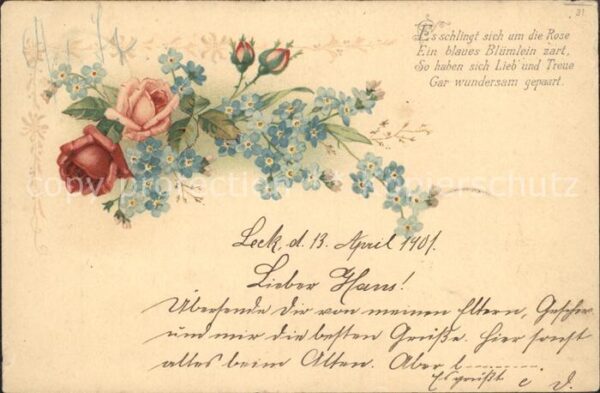 Es schlingt sich um die Rose
Ein blaues Blümlein zart,
So haben sich Lieb' und Treue
Gar wundersam gepaart.
Leck, d. 13. April 1901.
Lieber Hans!
Übersende Dir von meinen Eltern, Geschw.
und mir die besten Grüße. Hier sonst
alles beim Alten. Aber
Es grüßt